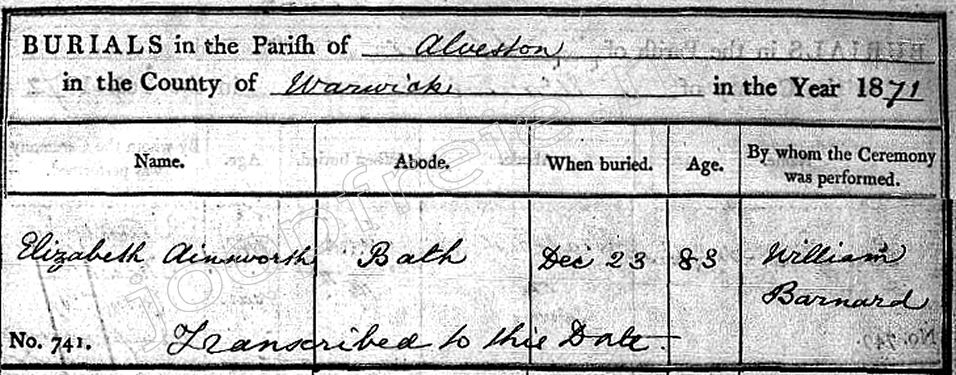 BURIALS in the Parish of Alveston
in the County of Warwick in the Year 1871
Name. Abode. When buried. Age. By whom the Ceremony was performed.
Elizabeth Ainsworth Bath Dec 23 83 William Barnard
No. 741. Transcribed to this Date